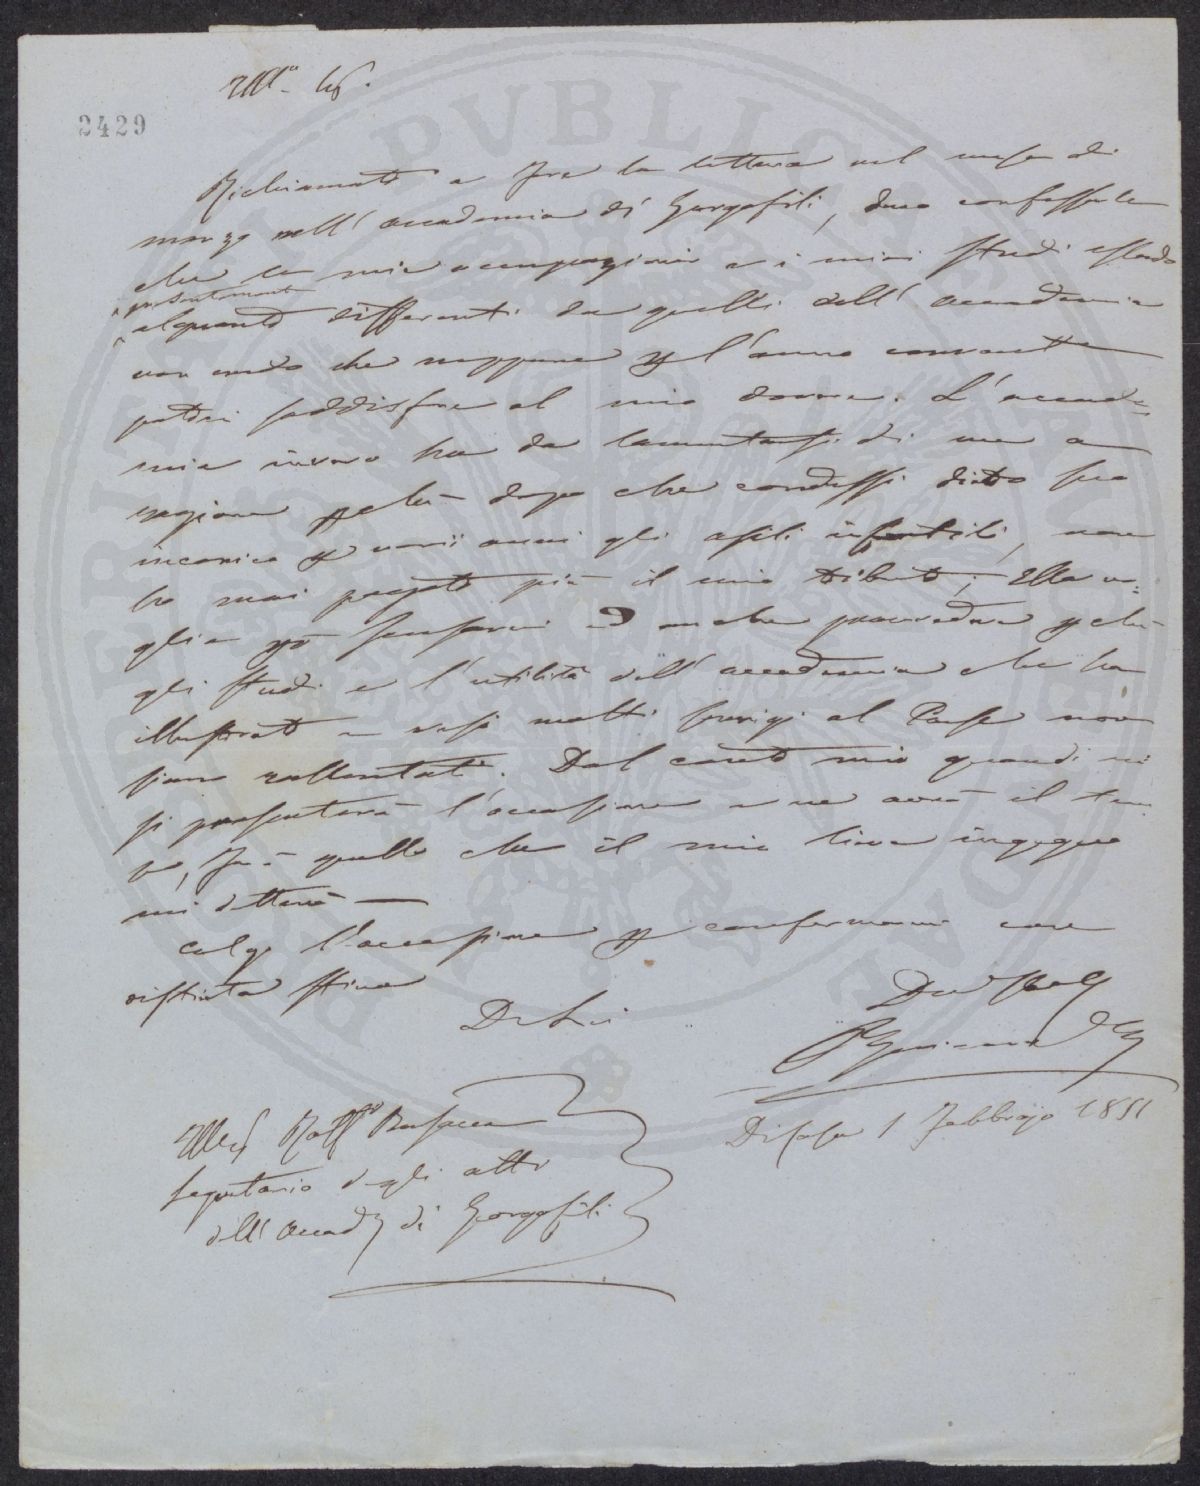 Ill.mo Sig.
2429
Richiamato a fare la lettura nel mese di
marzo nell' accademia di Georgofili, devo confessarle
che le mie occupazioni e i miei studi essendo
presentemente
alquanto differenti da quelli dell' accademia
non credo che neppure p l'anno corrente
potrei soddisfare al mio dovere. L' accade=
mia invero ha da lamentarsi di me a
ragione pchè dopo che condussi dietro suo
incarico p varii anni gli asili infantili, non
ho mai pagato più il mio tributo; Ella vo=
glia pò scusarmi ed anche provvedere pchè
gli studi e l'utilità dell' accademia che ha
illustrato e resi molti servigi al Paese non
siano rallentati. Dal canto mio quando mi
si presenterà l'occasione e ne avrò il tem
po, farò quello che il mio lieve ingegno
mi detterà —
Colgo l'occasione p confermarmi con
distinta stima
Di Lei
Dev
Ill Raff Busacca
Segretario degli atti
dell' Accad di Georgofili
Di Casa 1 Febbrajo 1851